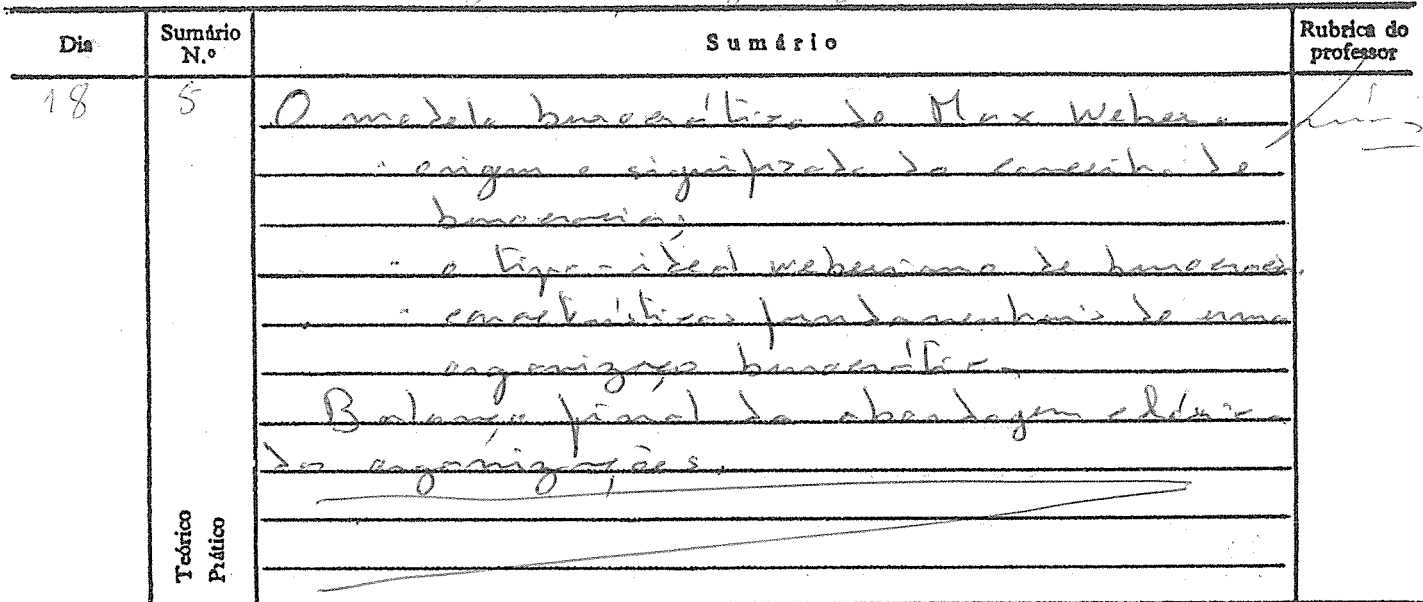 Dia Sumário N.º Sumário Rubrica do professor
18 5 O modelo burocrático de Max Weber.
- origem e significado do conceito de
burocracia;
- o tipo-ideal weberiano de burocracia
- características fundamentais de uma
organização burocrática
Balanço final da abordagem clássica
das organizações.
Teórico
Prático